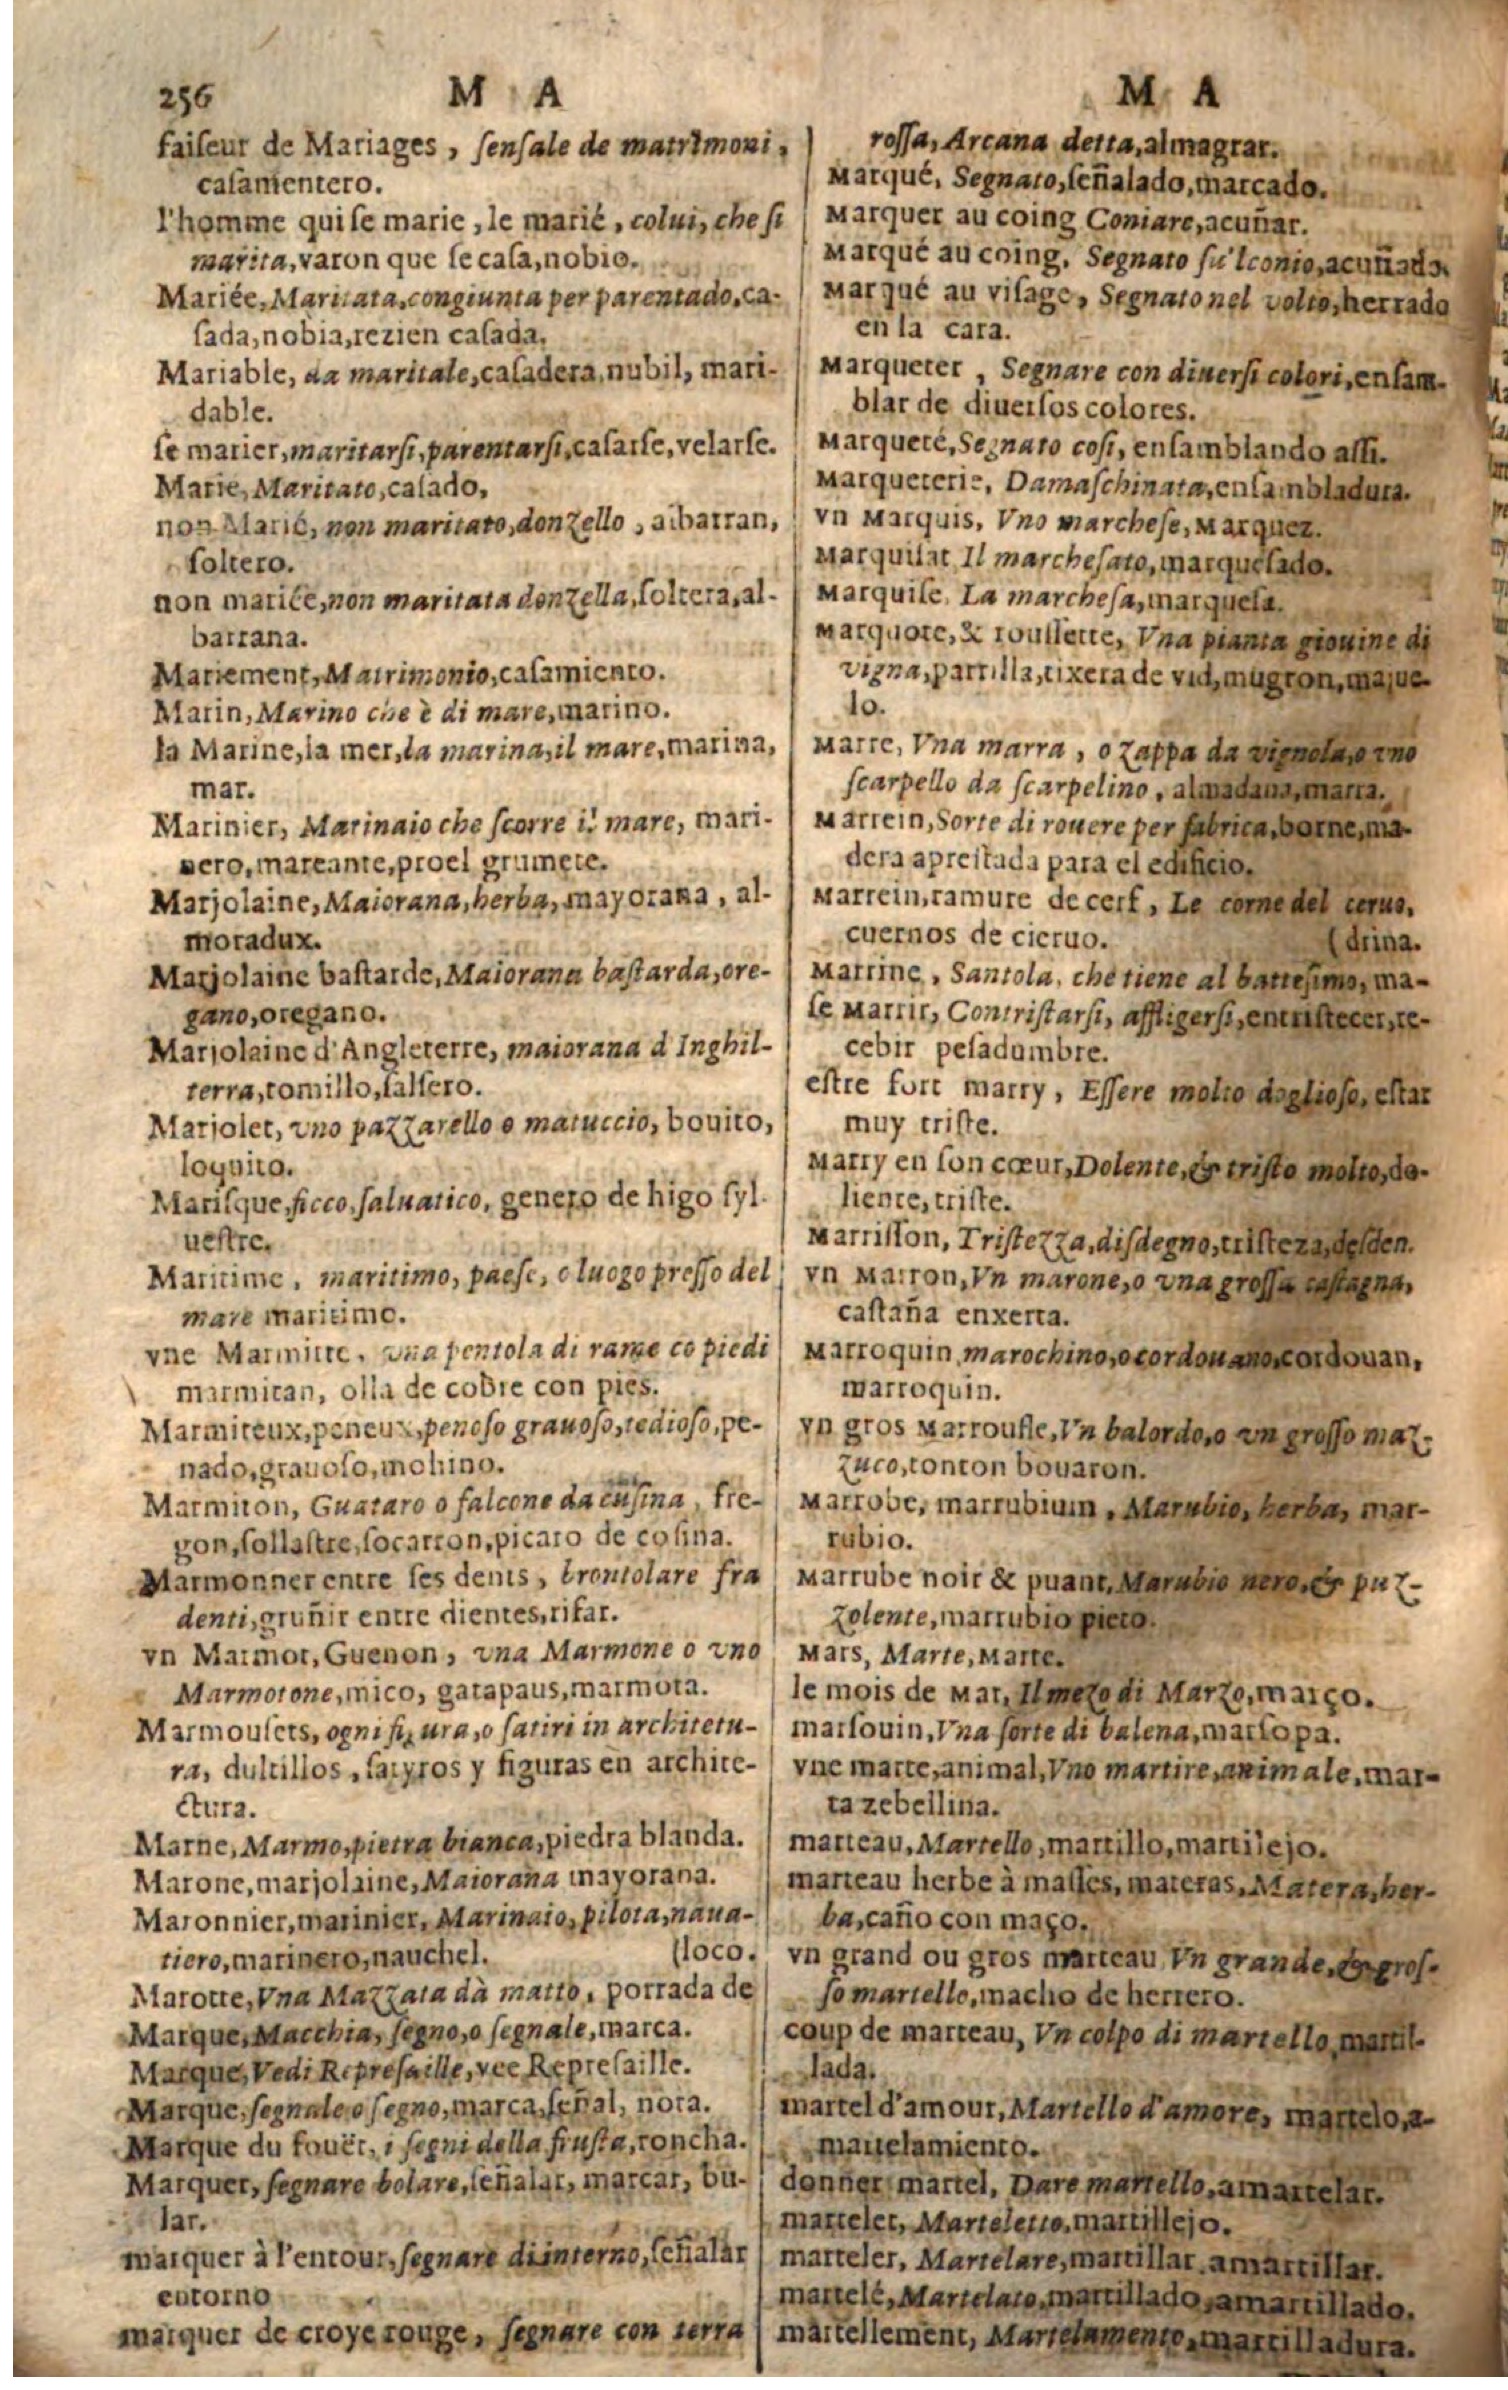 256 M A
faiſeur de Mariages, ſenſale de matrimoni,
caſamentero.
l'homme qui ſe marie, le marié, colui, che ſi
marita, varon que ſe caſa, nobio.
Mariée, Maritata, congiunta per parentado, ca-
ſada, nobia, rezien caſada.
Mariable, da maritale, caſadera, nubil, mari-
dable.
ſe marier, maritarſi, parentarſi, caſarſe, velarſe.
Marie, Maritato, caſado,
non Marié, non maritato, donzello, albarran,
ſoltero.
non mariée, non maritata donzella, ſoltera, al-
barrana.
Mariement, Matrimonio, caſamiento.
Marin, Marino che è di mare, marino.
la Marine, la mer, la marina, il mare, marina,
mar.
Marinier, Marinaio che ſcorre il mare, mari-
nero, mareante, proel grumete.
Marjolaine, Maiorana, herba, mayorana, al-
moradux.
Marjolaine baſtarde, Maiorana baſtarda, ore-
gano, oregano.
Marjolaine d'Angleterre, maiorana d'Inghil-
terra, tomillo, ſalſero.
Marjolet, vno pazzarello o matuccio, bouito,
loquito.
Mariſque, ficco, ſaluatico, genero de higo ſyl-
ueſtre.
Maritime, maritimo, paeſe, o luogo preſſo del
mare maritimo.
vne Marmitte, vna pentola di rame co piedi
marmitan, olla de cobre con pies.
Marmiteux, peneux, penoſo grauoſo, tedioſo, pe-
nado, grauoſo, mohino.
Marmiton, Guataro o falcone da cuſina, fre-
gon, ſollaſtre, ſocarron, picaro de coſina.
Marmonner entre ſes dents, brontolare fra
denti, gruñir entre dientes, rifar.
vn Marmot, Guenon, vna Marmone o vno
Marmotone, mico, gatapaus, marmota.
Marmouſets, ogni figura, o ſatiri in architetu-
ra, dultillos, ſatyros y figuras en archite-
ctura.
Marne, Marmo, pietra bianca, piedra blanda.
Marone, marjolaine, Maiorana mayorana.
Maronnier, marinier, Marinaio, pilota, naua-
tiero, marinero, nauchel. (loco.
Marotte, Vna Mazzata dà matto, porrada de
Marque, Macchia, ſegno, o ſegnale, marca.
Marque, Vedi Repreſaille, vee Repreſaille.
Marque, ſegnale o ſegno, marca, ſeñal, nota.
Marque du fouët, i ſegni della fruſta, roncha.
Marquer, ſegnare bolare, ſeñalar, marcar, bu-
lar.
marquer à l'entour, ſegnare di interno, ſeñalar
entorno
marquer de croye rouge, ſegnare con terra
M A
roſſa, Arcana detta, almagrar.
Marqué, Segnato, ſeñalado, marcado.
Marquer au coing Coniare, acuñar.
Marqué au coing, Segnato ſu'lconio, acuñado.
Marqué au viſage, Segnato nel volto, herrado
en la cara.
Marqueter, Segnare con diuerſi colori, enſam-
blar de diuerſos colores.
Marqueté, Segnato coſi, enſamblando aſſi.
Marqueterie, Damaſchinata, enſambladura.
vn Marquis, Vno marcheſe, Marquez.
Marquiſat Il marcheſato, marqueſado.
Marquiſe, La marcheſa, marqueſa.
Marquote, & rouſſette, Vna pianta giouine di
vigna, parrilla, tixera de vid, mugron, majue-
lo.
Marre, Vna marra, o zappa da vignola, o vno
ſcarpello da ſcarpelino, almadana, marra.
Marrein, Sorte di rouere per fabrica, borne, ma-
dera apreſtada para el edificio.
Marrein, ramure de cerf, Le corne del ceruo,
cuernos de cieruo. (drina.
Marrine, Santola, che tiene al batteſimo, ma-
ſe Marrir, Contriſtarſi, affligerſi, entriſtecer, re-
cebir peſadumbre.
eſtre fort marry, Eſſere molto doglioſo, eſtar
muy triſte.
Marry en ſon cœur, Dolente, & triſto molto, do-
liente, triſte.
Marriſſon, Triſtezza, diſdegno, triſteza, deſden.
vn Marron, Vn marone, o vna groſſa caſtagna,
caſtaña enxerta.
Marroquin, marochino, o cordouano, cordouan,
marroquin.
vn gros Marroufle, Vn balordo, o vn groſſo maz-
zuco, tonton bouaron.
Marrobe, marrubium, Marubio, herba, mar-
rubio.
Marrube noir & puant, Marubio nero, & puz-
zolente, marrubio prieto.
Mars, Marte, Marte.
le mois de Mar, Il mezo di Marzo, março.
marſouin, Vna ſorte di balena, marſopa.
vne marte, animal, Vno martire, animale, mar-
ta zebellina.
marteau, Martello, martillo, martillejo.
marteau herbe à maſſes, materas, Matera, her-
ba, caño con maço.
vn grand ou gros marteau Vn grande, & groſ-
ſo martello, macho de herrero.
coup de marteau, Vn colpo di martello martil-
lada.
martel d'amour, Martello d'amore, martelo, a-
martelamiento.
donner martel, Dare martello, amartelar.
martelet, Marteletto, martillejo.
marteler, Martelare, martillar, amartillar.
martelé, Martelato, martillado, amartillado.
martellement, Martelamento, martilladura.